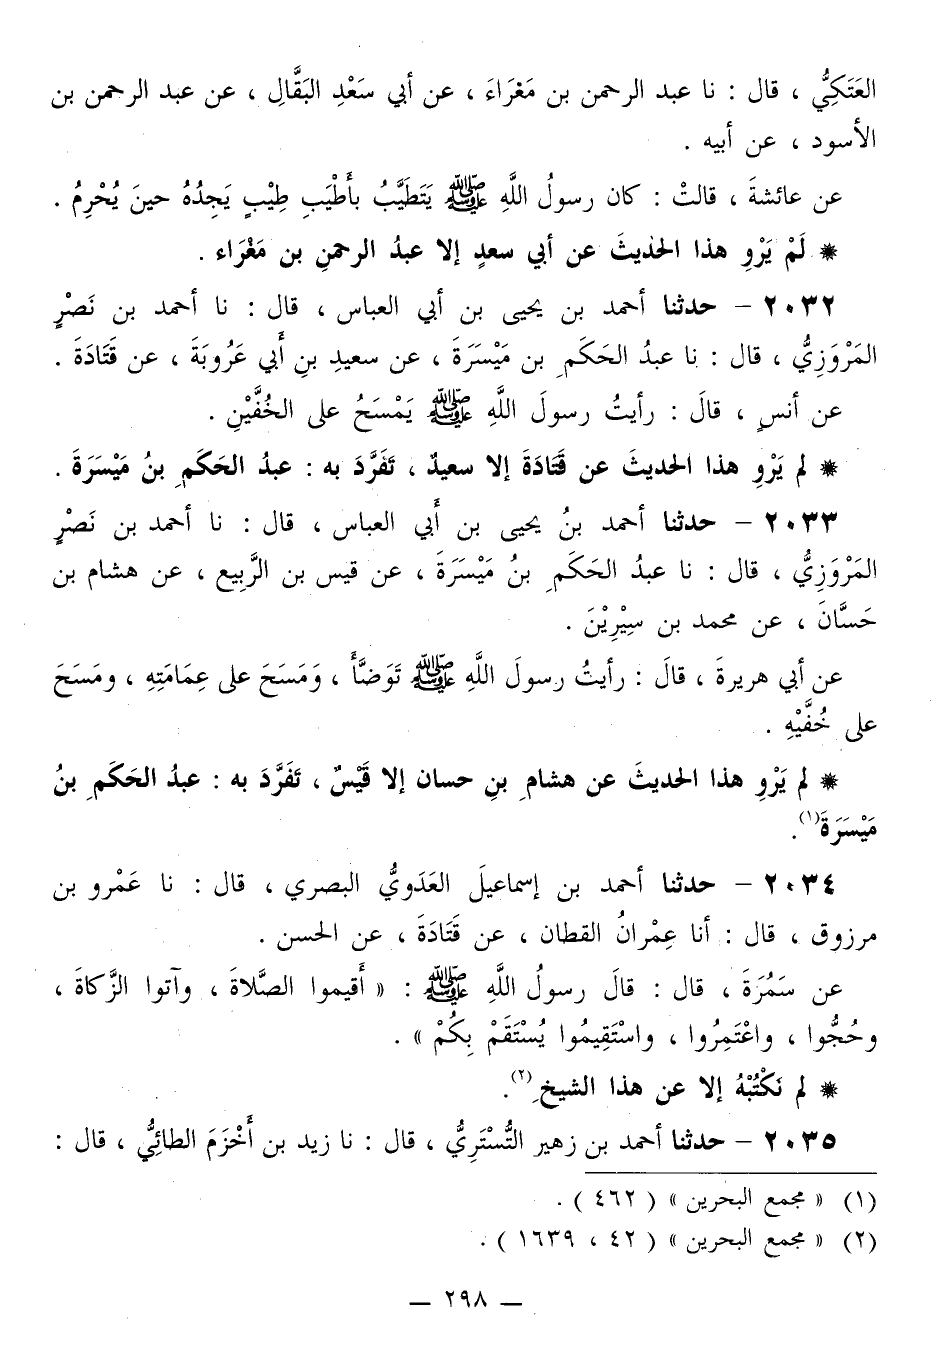 العَتَكِيُّ ، قال : نا عبد الرحمن بن مَغْرَاءَ ، عن أبي سَعْدِ البَقَّالِ ، عن عبد الرحمن بن
الأسود ، عن أبيه .
عن عائشةَ ، قالتْ : كان رسولُ اللَّهِ ﷺ يَتَطَيَّبُ بأَطْيَبِ طِيْبٍ يَجِدُهُ حينَ يُحْرِمُ .
* لَمْ يَرْوِ هذا الحديثَ عن أبي سعدٍ إلا عبدُ الرحمنِ بن مَغْرَاء .
٢٠٣٢ – حدثنا أحمد بن يحيى بن أبي العباس ، قال : نا أحمد بن نَصْرٍ
المَرْوَزِيُّ ، قال : نا عبدُ الحَكَمِ بن مَيْسَرَةَ ، عن سعيدِ بنِ أَبي عَرُوبَةَ ، عن قَتَادَةَ .
عن أنسٍ ، قالَ : رأيتُ رسولَ اللَّهِ ﷺ يَمْسَحُ على الخُفَّيْنِ .
* لم يَرْوِ هذا الحديثَ عن قَتَادَةَ إلا سعيدٌ ، تَفَرَّدَ به : عبدُ الحَكَمِ بنُ مَيْسَرَةَ .
٢٠٣٣ – حدثنا أحمد بنُ يحيى بن أَبي العباس ، قال : نا أحمد بن نَصْرٍ
المَرْوَزِيُّ ، قال : نا عبدُ الحَكَمِ بنُ مَيْسَرَةَ ، عن قيس بن الرَّبِيع ، عن هشام بن
حَسَّانَ ، عن محمد بن سِيْرِيْنَ .
عن أبي هريرةَ ، قالَ : رأيتُ رسولَ اللَّهِ ﷺ تَوَضَّأَ ، وَمَسَحَ على عِمَامَتِهِ ، ومَسَحَ
على خُفَّيْهِ .
* لم يَرْوِ هذا الحديثَ عن هشامِ بنِ حسان إلا قَيْسٌ ، تَفَرَّدَ به : عبدُ الحَكَمِ بنُ
مَيْسَرَةَ(١).
٢٠٣٤ – حدثنا أحمد بن إسماعيلَ العَدَويُّ البصري ، قال : نا عَمْرو بن
مرزوق ، قال : أنا عِمْرانُ القطان ، عن قَتَادَةَ ، عن الحسن .
عن سَمُرَةَ ، قال : قالَ رسولُ اللَّهِ ﷺ : « أَقيموا الصَّلاةَ ، وآتوا الزَّكاةَ ،
وحُجُّوا ، واعْتَمِرُوا ، واسْتَقِيمُوا يُسْتَقَمْ بِكُمْ » .
* لم نَكْتُبْهُ إلا عن هذا الشيخِ(٢).
٢٠٣٥ – حدثنا أحمد بن زهير التُّسْتَرِيُّ ، قال : نا زيد بن أَخْزَمَ الطائِيُّ ، قال :
(١) « مجمع البحرين » ( ٤٦٢ ) .
(٢) « مجمع البحرين » ( ٤٢ ، ١٦٣٩ ) .
— ٢٩٨ —